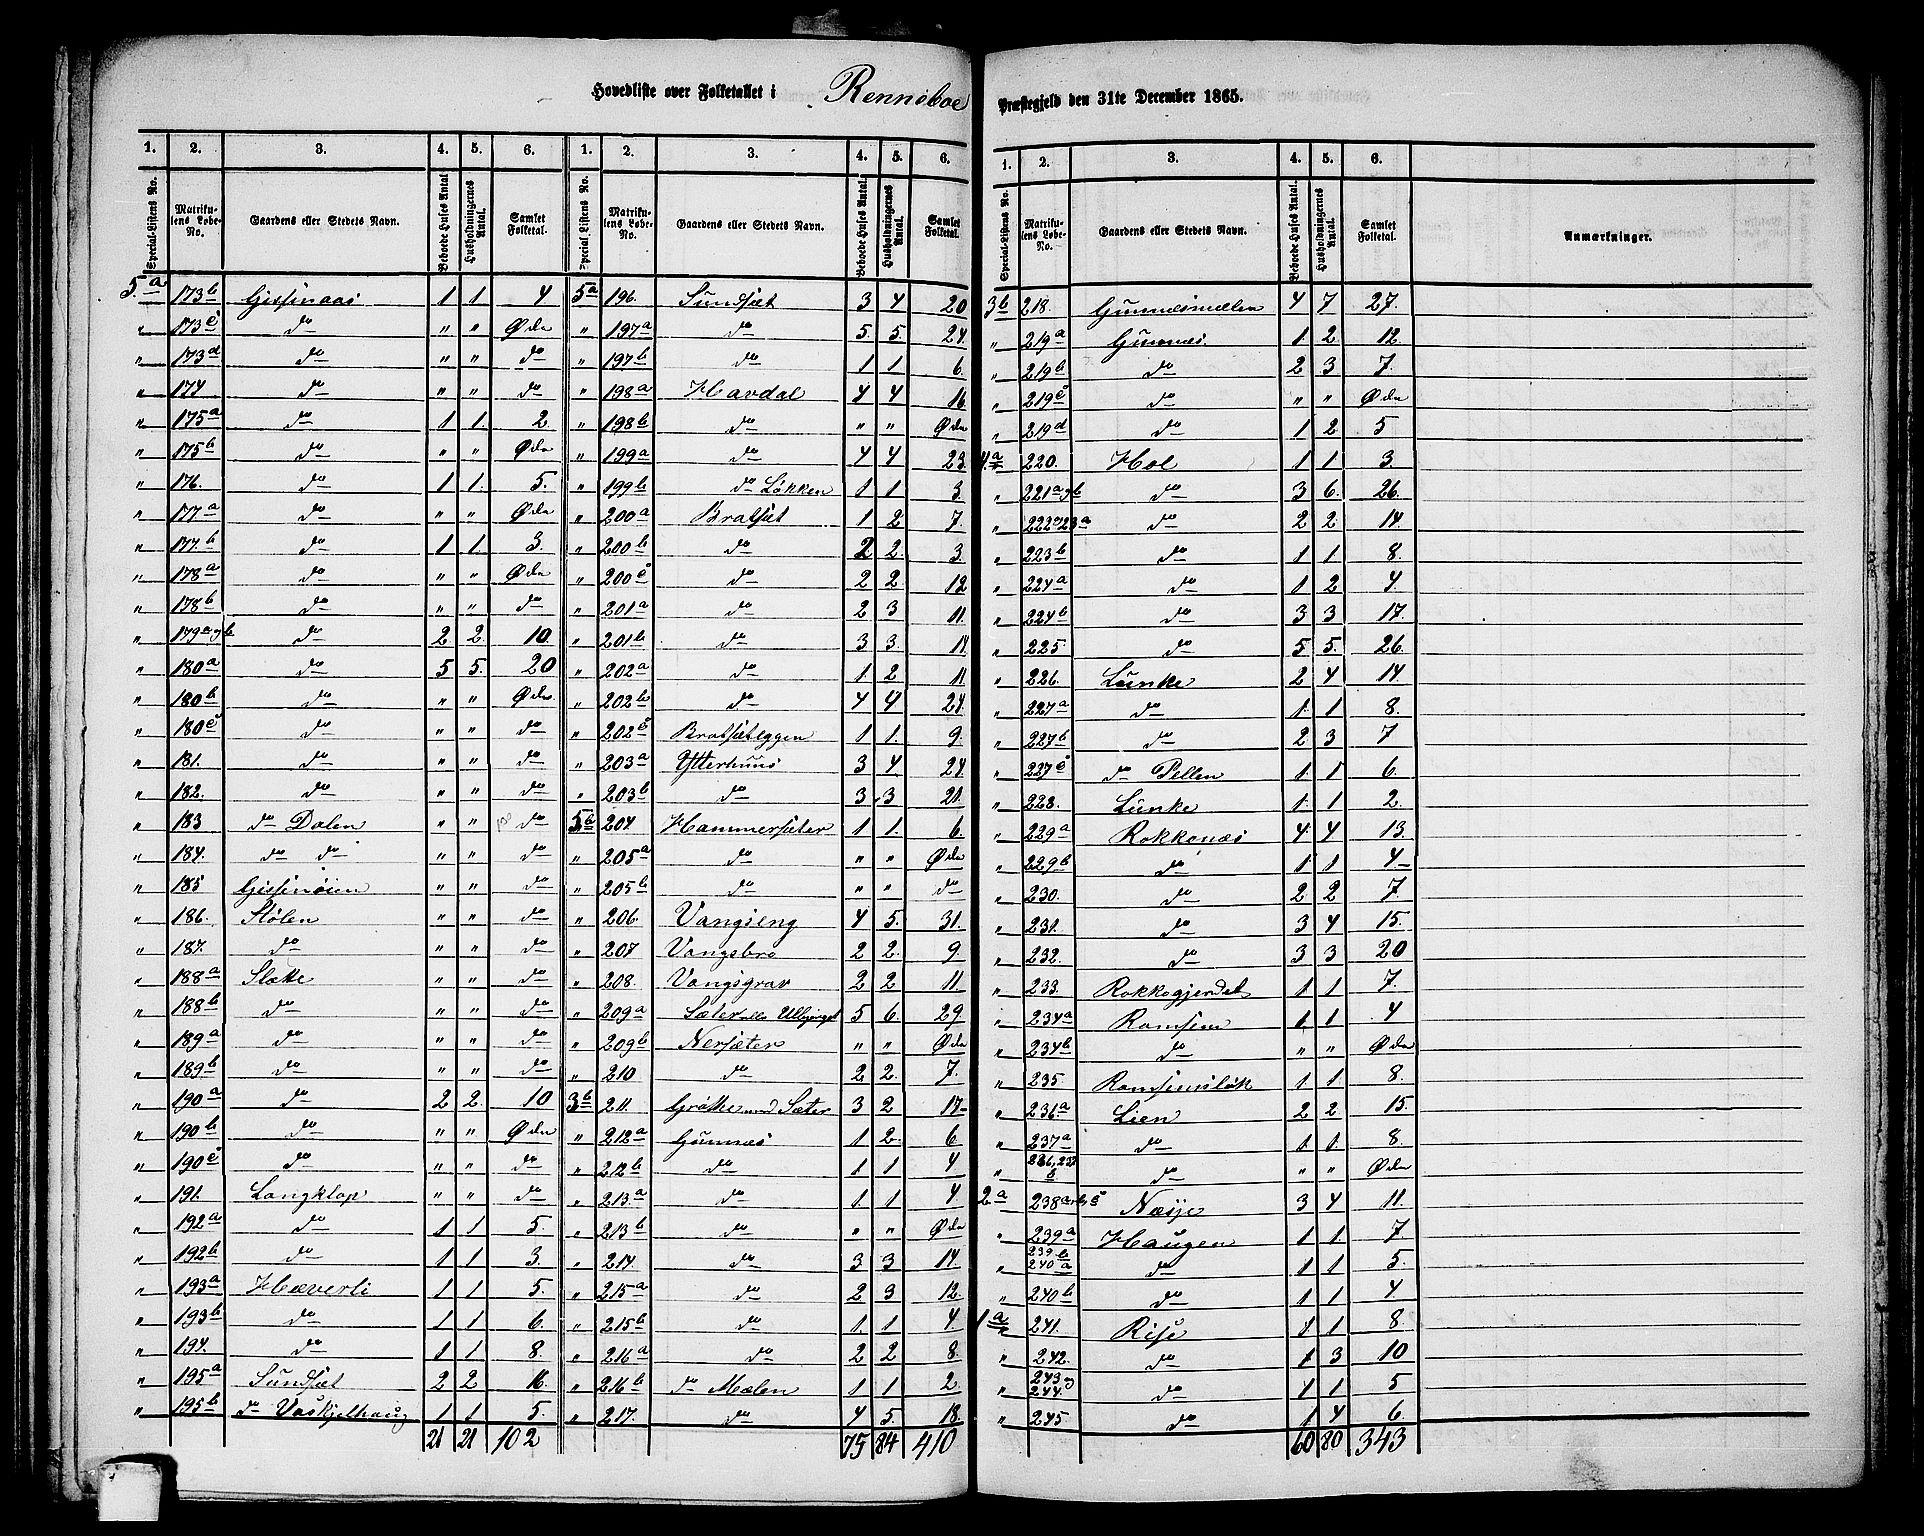 Hovedliste over Folketallet i Renneboe Præstegjeld den 31te December 1865.
1. 2. 3. 4. 5. 6. 1. 2. 3. 4. 5. 6.
Special-Listens No. Matrikulens Løbe-No. Gaardens eller Stedets Navn. Beboede Huses Antal Husholdningernes Antal. Samlet Folketal. Special Listens No. Matrikulens Løbe-No. Gaardens eller Stedets Navn. Beboede Huses Antal. Husholdningernes Antal. Samlet Folketal.
5a 173b Gissinaas 1 1 4 5a 196. Sundset 3 4 20
" 173c do " " Øde " 197a do 5. 5. 24.
" 173d do " " do " 197b do 1 1 6.
" 174 do " " do " 198a Havdal 4 4 16
" 175a do 1 1. 2. " 198b do " " Øde
" 175b do " " Øde " 199a do 4 4 23.
" 176. do 1 1. 5. " 199b do Løkken 1 1 3.
" 177a do " " Øde " 200a Bratset 1 2 7.
" 177b do 1 1. 3. " 200b do 2 2. 3.
" 178a do " " Øde " 200c do 2 2. 12
" 178b do " " do " 201a do 2 3 11.
" 179a og b do 2. 2. 10. " 201b do 3 3. 14.
" 180a do 5 5. 20 " 202a do 1. 2 11
" 180b do " " Øde " 202b do 4 4 24.
" 180c do " " do " 202c Bratseteggen 1 1. 9.
" 181. do " " do " 203a Ytterhuus 3 4 24.
" 182. do " " do " 203b do 3. 3 21.
" 183 do Dalen " " do 5b 204. Hammersæter 1 1. 6.
" 184. do do " " do " 205a do " " Øde
" 185 Gissinøien " " do " 205b do " " do
" 186. Stølen " " do " 206. Vangseng 4 5. 31.
" 187. do " " do " 207 Vangsbro 2 2. 9.
" 188a Slæke " " do " 208. Vangsgrav 2 2 11
" 188b do " " do " 209a Sæter eller Ulbjerget 5 6. 29
" 189a do " " do " 209b Nersæter " " Øde
" 189b do " " do " 210 do 2 2. 7.
" 190a do 2 2. 10 3b 211. Gröthe med Sæter 3 2 17
" 190b do " " Øde " 212a Gunnæs 1 2. 6
" 190c do " " do " 212b do 1 1 4
" 191. Langklop " " do " 213a do 1. 1 4.
" 192a do 1 1 5. " 213b do " " Øde
" 192b do 1 1 3. " 214. do 3 3 14.
" 193a Hæverli 1 1 5. " 215a do 2 3 12.
" 193b do 1 1 6. " 215b do 1. 1 4.
" 194. do 1 1 8 " 216a do 2 2 8.
" 195a Sundset 2 2 16. " 216b do Mælen 1 1 2
" 195b do Vaskjelhaug 1 1 5. " 217. do 4 5. 18.
21 21 102 75 84 410
1. 2. 3. 4. 5. 6.
Special-Listens No. Matrikulens Løbe-No. Gaardens eller Stedets Navn. Beboede Huses Antal. Husholdningernes Antal. Samlet Folketal. Anmærkninger.
3b 218. Gunnæsmælen 4 7 27.
" 219a Gunnæs. 1. 2 12.
" 219b do 2 3 7.
" 219c do " " Øde
" 219d do 1 2 5
4a 220. Hol 1 1 3.
" 221a og b do 3 6. 26.
" 222 og 23a do 2 2 14.
" 223b do 1 1 8.
" 224a do 1 2 4.
" 224b do 3 3 17.
" 225. do 5 5. 26
" 226. Lunke 2 4 14
" 227a do 1. 1 8.
" 227b do 2 3 7
" 227c do Pellen 1. 1 6.
" 228. Lunke 1. 1 2.
" 229a Rokkones 4. 4 13
" 229b do 1 1 4
" 230. do 2 2 7.
" 231. do 3 4 15.
" 232. do 3 3 20
" 233. Rokkogjerdet 1 1 7.
" 234a Ramsem 1. 1 4
" 234b do " " Øde
" 235. Ramsemsløk 1 1. 8.
" 236a Lien 2 2 15.
" 237a do 1. 1. 8.
" 236, 237 b do " " Øde
2a 238a og b c Næsje 3 4 11.
" 239a Haugen 1 1 7.
" 239b 240a do 1 1 5.
" 240b do 1 1 4.
1a 241. Rise 1 1 8.
" 242. do 1 3 10
" 243 og 244. do 1 1 5
" 245 do 1 4 6.
60 80 343